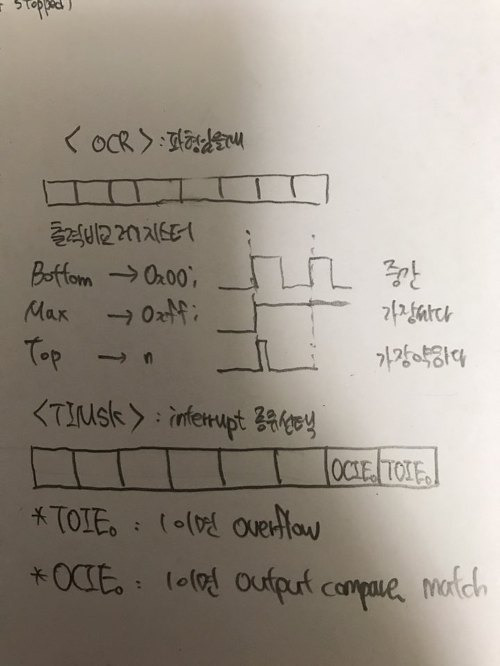 stopped)
<OCR> : 파형일을때
출력비교 레지스터
Bottom → 0x00; 중간
Max → 0xff; 가장쎄다
Top → n 가장약하다
<TIMSK> : interrupt 종류선택
OCIE0 TOIE0
*TOIE0 : 1이면 overflow
*OCIE0 : 1이면 output compare match